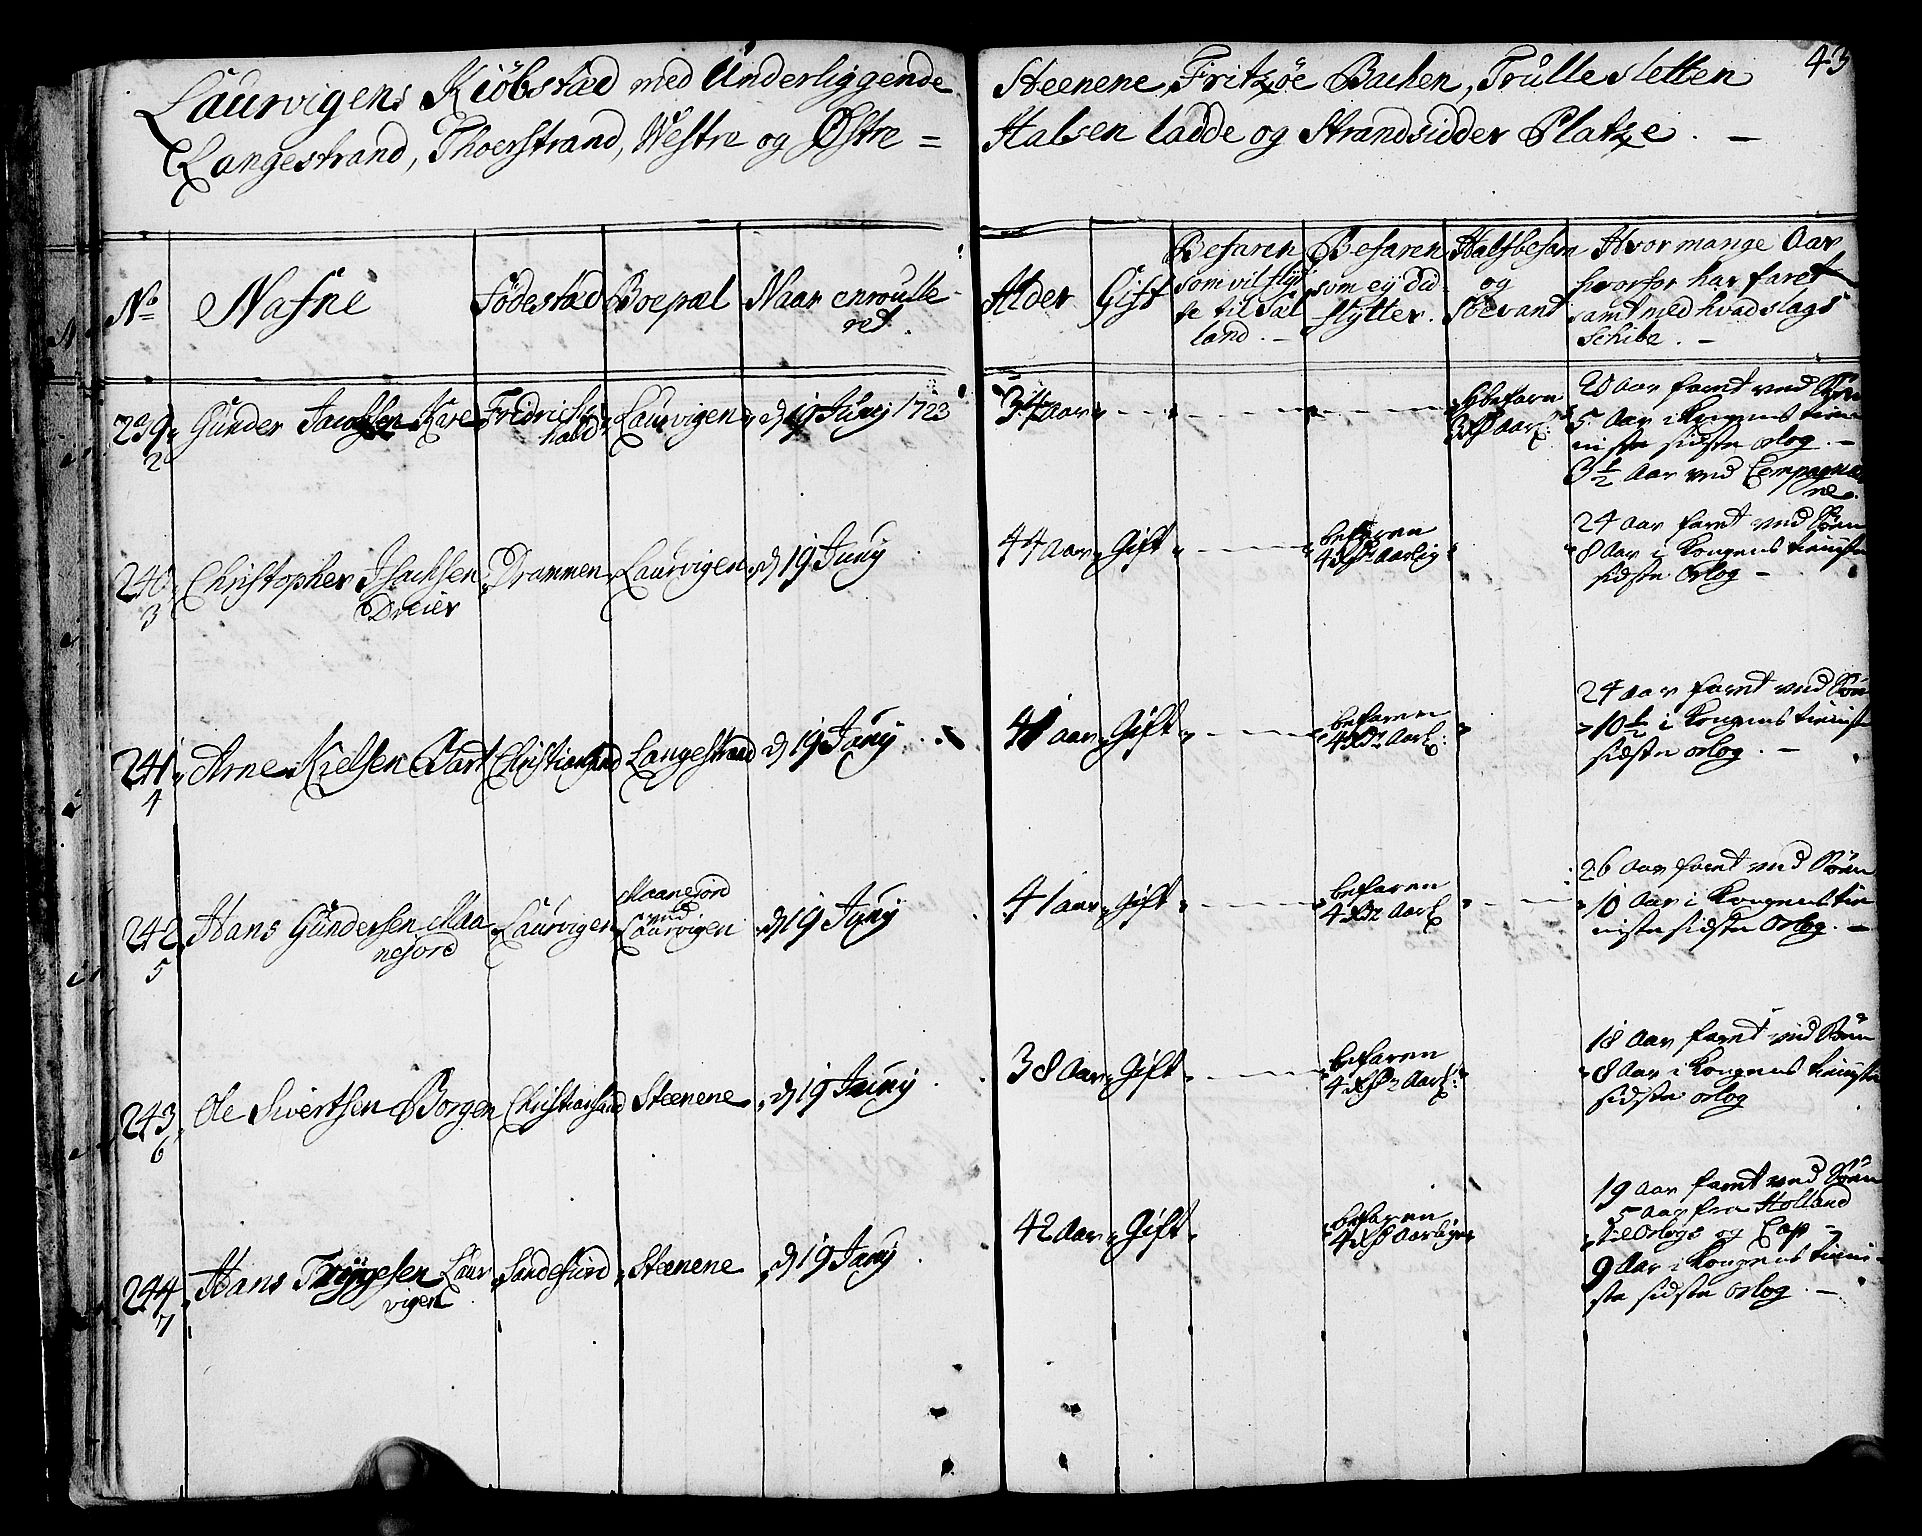 43
Laurvigens Kiöbstæd med Underliggende Steenene, Fritzøe Bachen, Trülle sletten
Langestrand, Thoerstrand, Westre og Østre = Halsen ladde og Strandsidder Platze. —
No
Nafne
Födestæd
Boepæl
Naar enroulle
ret.
Alder
Gift
Befaren
som vil flÿt
te til Sæl
land. —
Befaren
som eÿ did
flytter.
Halfbefarn
og
Söevant
Hvor mange Aar
hvorfor har faret
samt med hvad slags
Schibe. —
239
2
Günder Jacobsen Kive
Fridrichs
hald
Laurvigen
d 19 Junÿ 1723
34 Aar
Hbefaren
3 Aarl:
20 Aar faret ved Söen
5 Aar i Kongens tiene
niste sidste orlog. —
3 1/2 Aar ved Compagnie
ne.
240
3
Christopher Isachsen
Dreier
Drammen
Laurvigen
d 19 Junÿ
44 Aar
Gift
befaren
4 Aarlig
24 Aar faret ved Söen
8 Aar i Kongens tienniste
sidste Orlog —
241
4
Arne Kielsen Aart
Christiansand
Langestrand
d 19 Junÿ
41 aar
Gift
befaren
4 Aarl:
24 Aar faret ved Söen
10 1/2 i Kongens tienniste
sidste orlog. —
242
5
Hans Gündersen Maa
nejord
Laurvigen
Maanejord
ved
Laurvigen
d 19 Junÿ
41 aar
Gift
befaren
4 Aarl
26 Aar faret ved Söen
10 Aar i Kongens tien
niste sidste Orlog. —
243
6
Ole Sivertsen Borgen
Christiansand
Steenene
d 19 Junÿ
38 Aar
Gift
befaren
4 Aarl:
18 Aar faret ved Söen
8 Aar i Kongens tienniste
sidste orlog
244
7
Hans Trÿgesen Laur
vigen
Sandefiord
Steenene
d 19 Junÿ
42 Aar
Gift
befaren
4 Aarligen
19 Aar faret ved Söen
5 Aar fra Holland
til Orlogs og Cap =
9 Aar i Kongens tienni-
ste sidste orlog. —